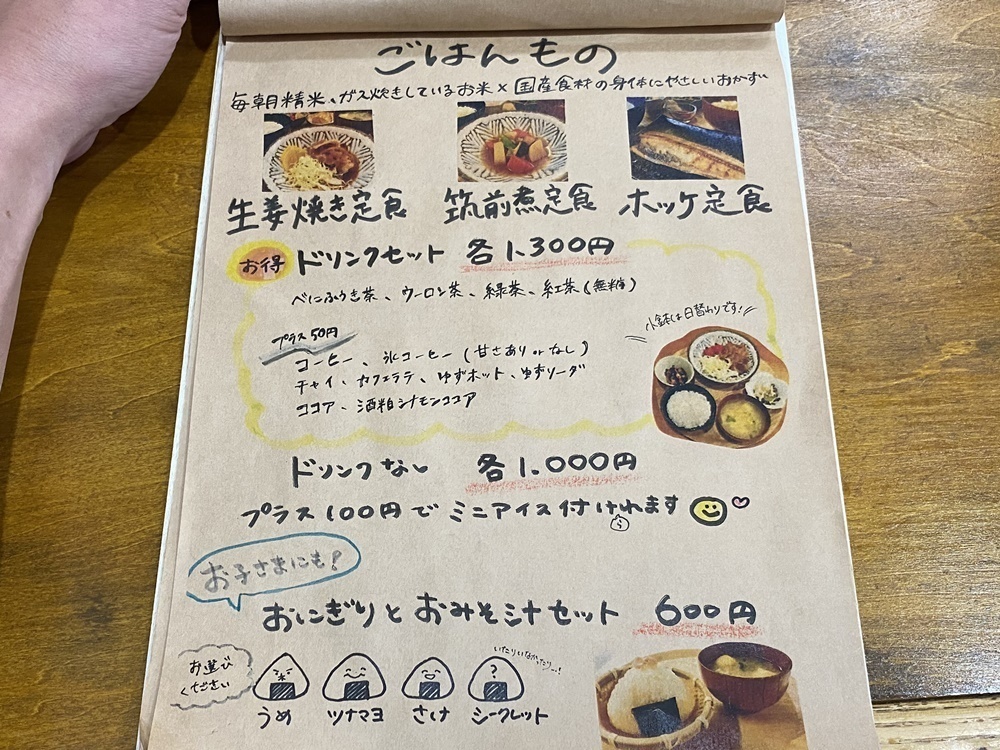 ごはんもの
毎朝精米、ガス炊きしているお米×国産食材の身体にやさしいおかず
生姜焼き定食 筑前煮定食 ホッケ定食
お得 ドリンクセット 各1.300円
べにふうき茶、ウーロン茶、緑茶、紅茶(無糖)
プラス50円
コーヒー、氷コーヒー(甘さあり or なし)
チャイ、カフェラテ、ゆずホット、ゆずソーダ
ココア、酒粕シナモンココア
小鉢は日替わりです!!
ドリンクなし 各1.000円
プラス100円でミニアイス付けられます
お子さまにも!
おにぎりとおみそ汁セット 600円
お選びください
いたりいなかったり…!
うめ ツナマヨ さけ シークレット